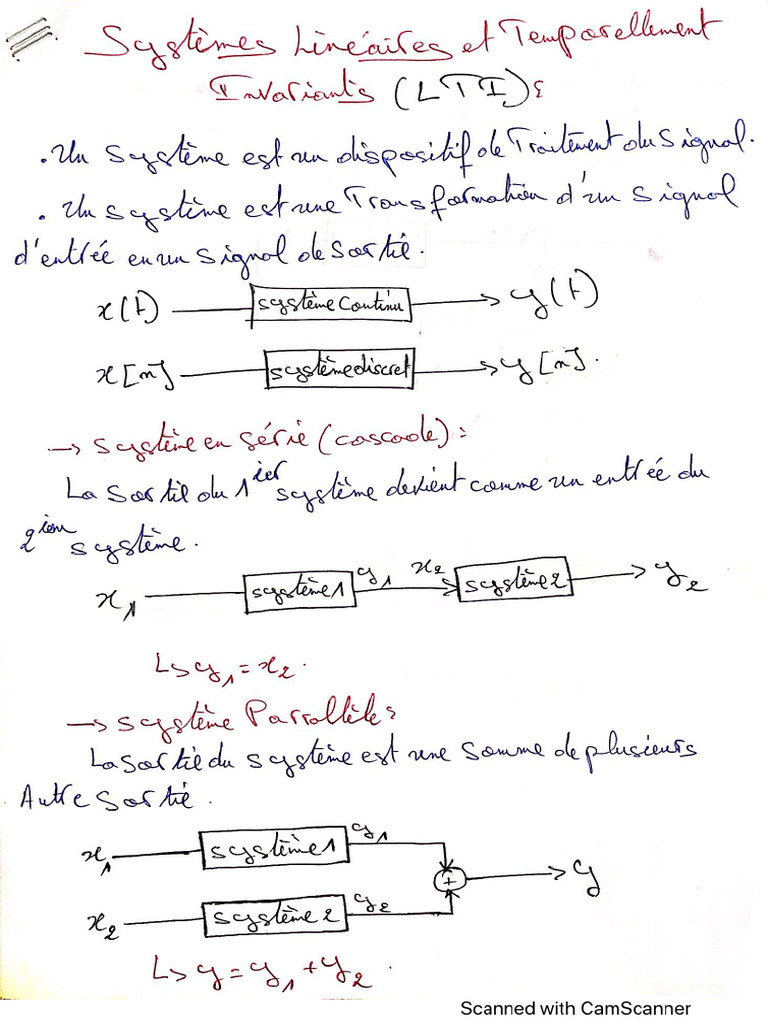 Systèmes Linéaires et Temporellement
Invariants (LTI):
. Un système est un dispositif de Traitement du Signal.
. Un système est une Transformation d'un signal
d'entrée en un signal de sortie.
x(t) système Continu y(t)
x[n] système discret y[n].
→ système en série (cascade) :
La sortie du 1ier système devient comme un entrée du
2iem système.
x1 système 1 y1 x2 système 2 y2
L> y1 = x2 .
→ système Parrallèle :
La sortie du système est une somme de plusieurs
Autre sortie .
x1 système 1 y1
+ y
x2 système 2 y2
L> y = y1 + y2 .
Scanned with CamScanner